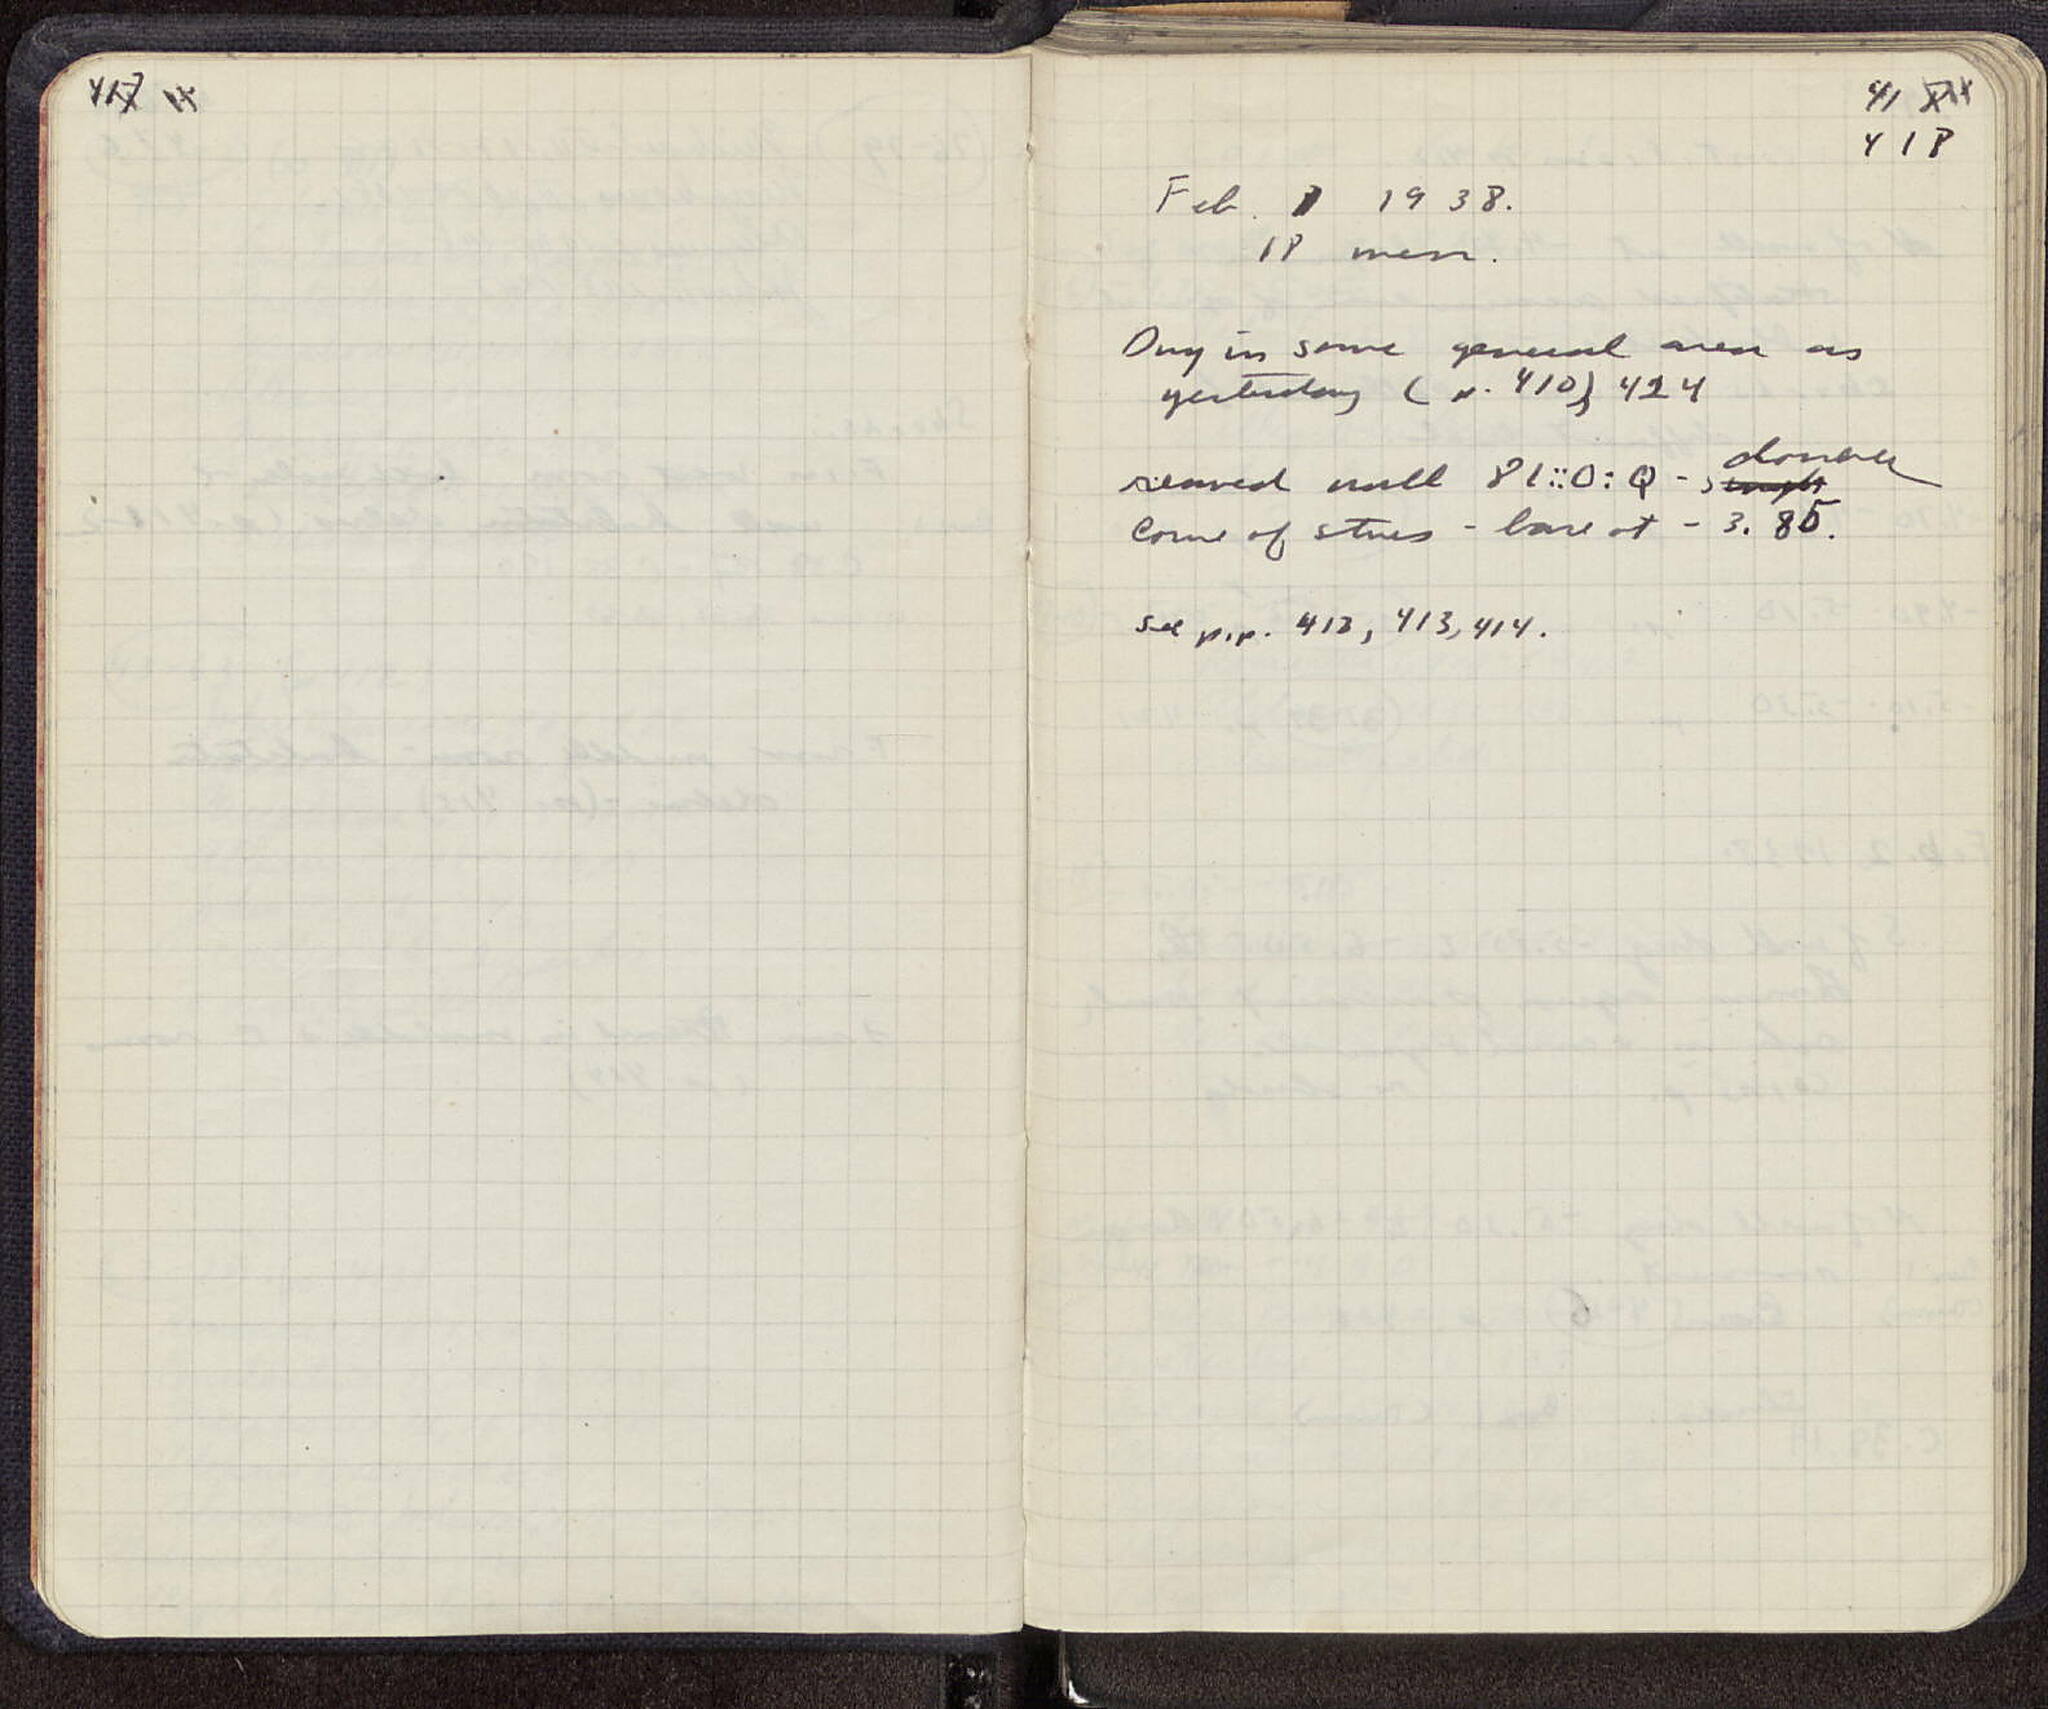 417
41
418
Feb. 1 1938.
18 men.
Dug in same general area as
yesterday (p. 410) 424
removed wall 81::O:Q - double
Corse of stones - base at - 3.85.
see p.p. 412, 413, 414.